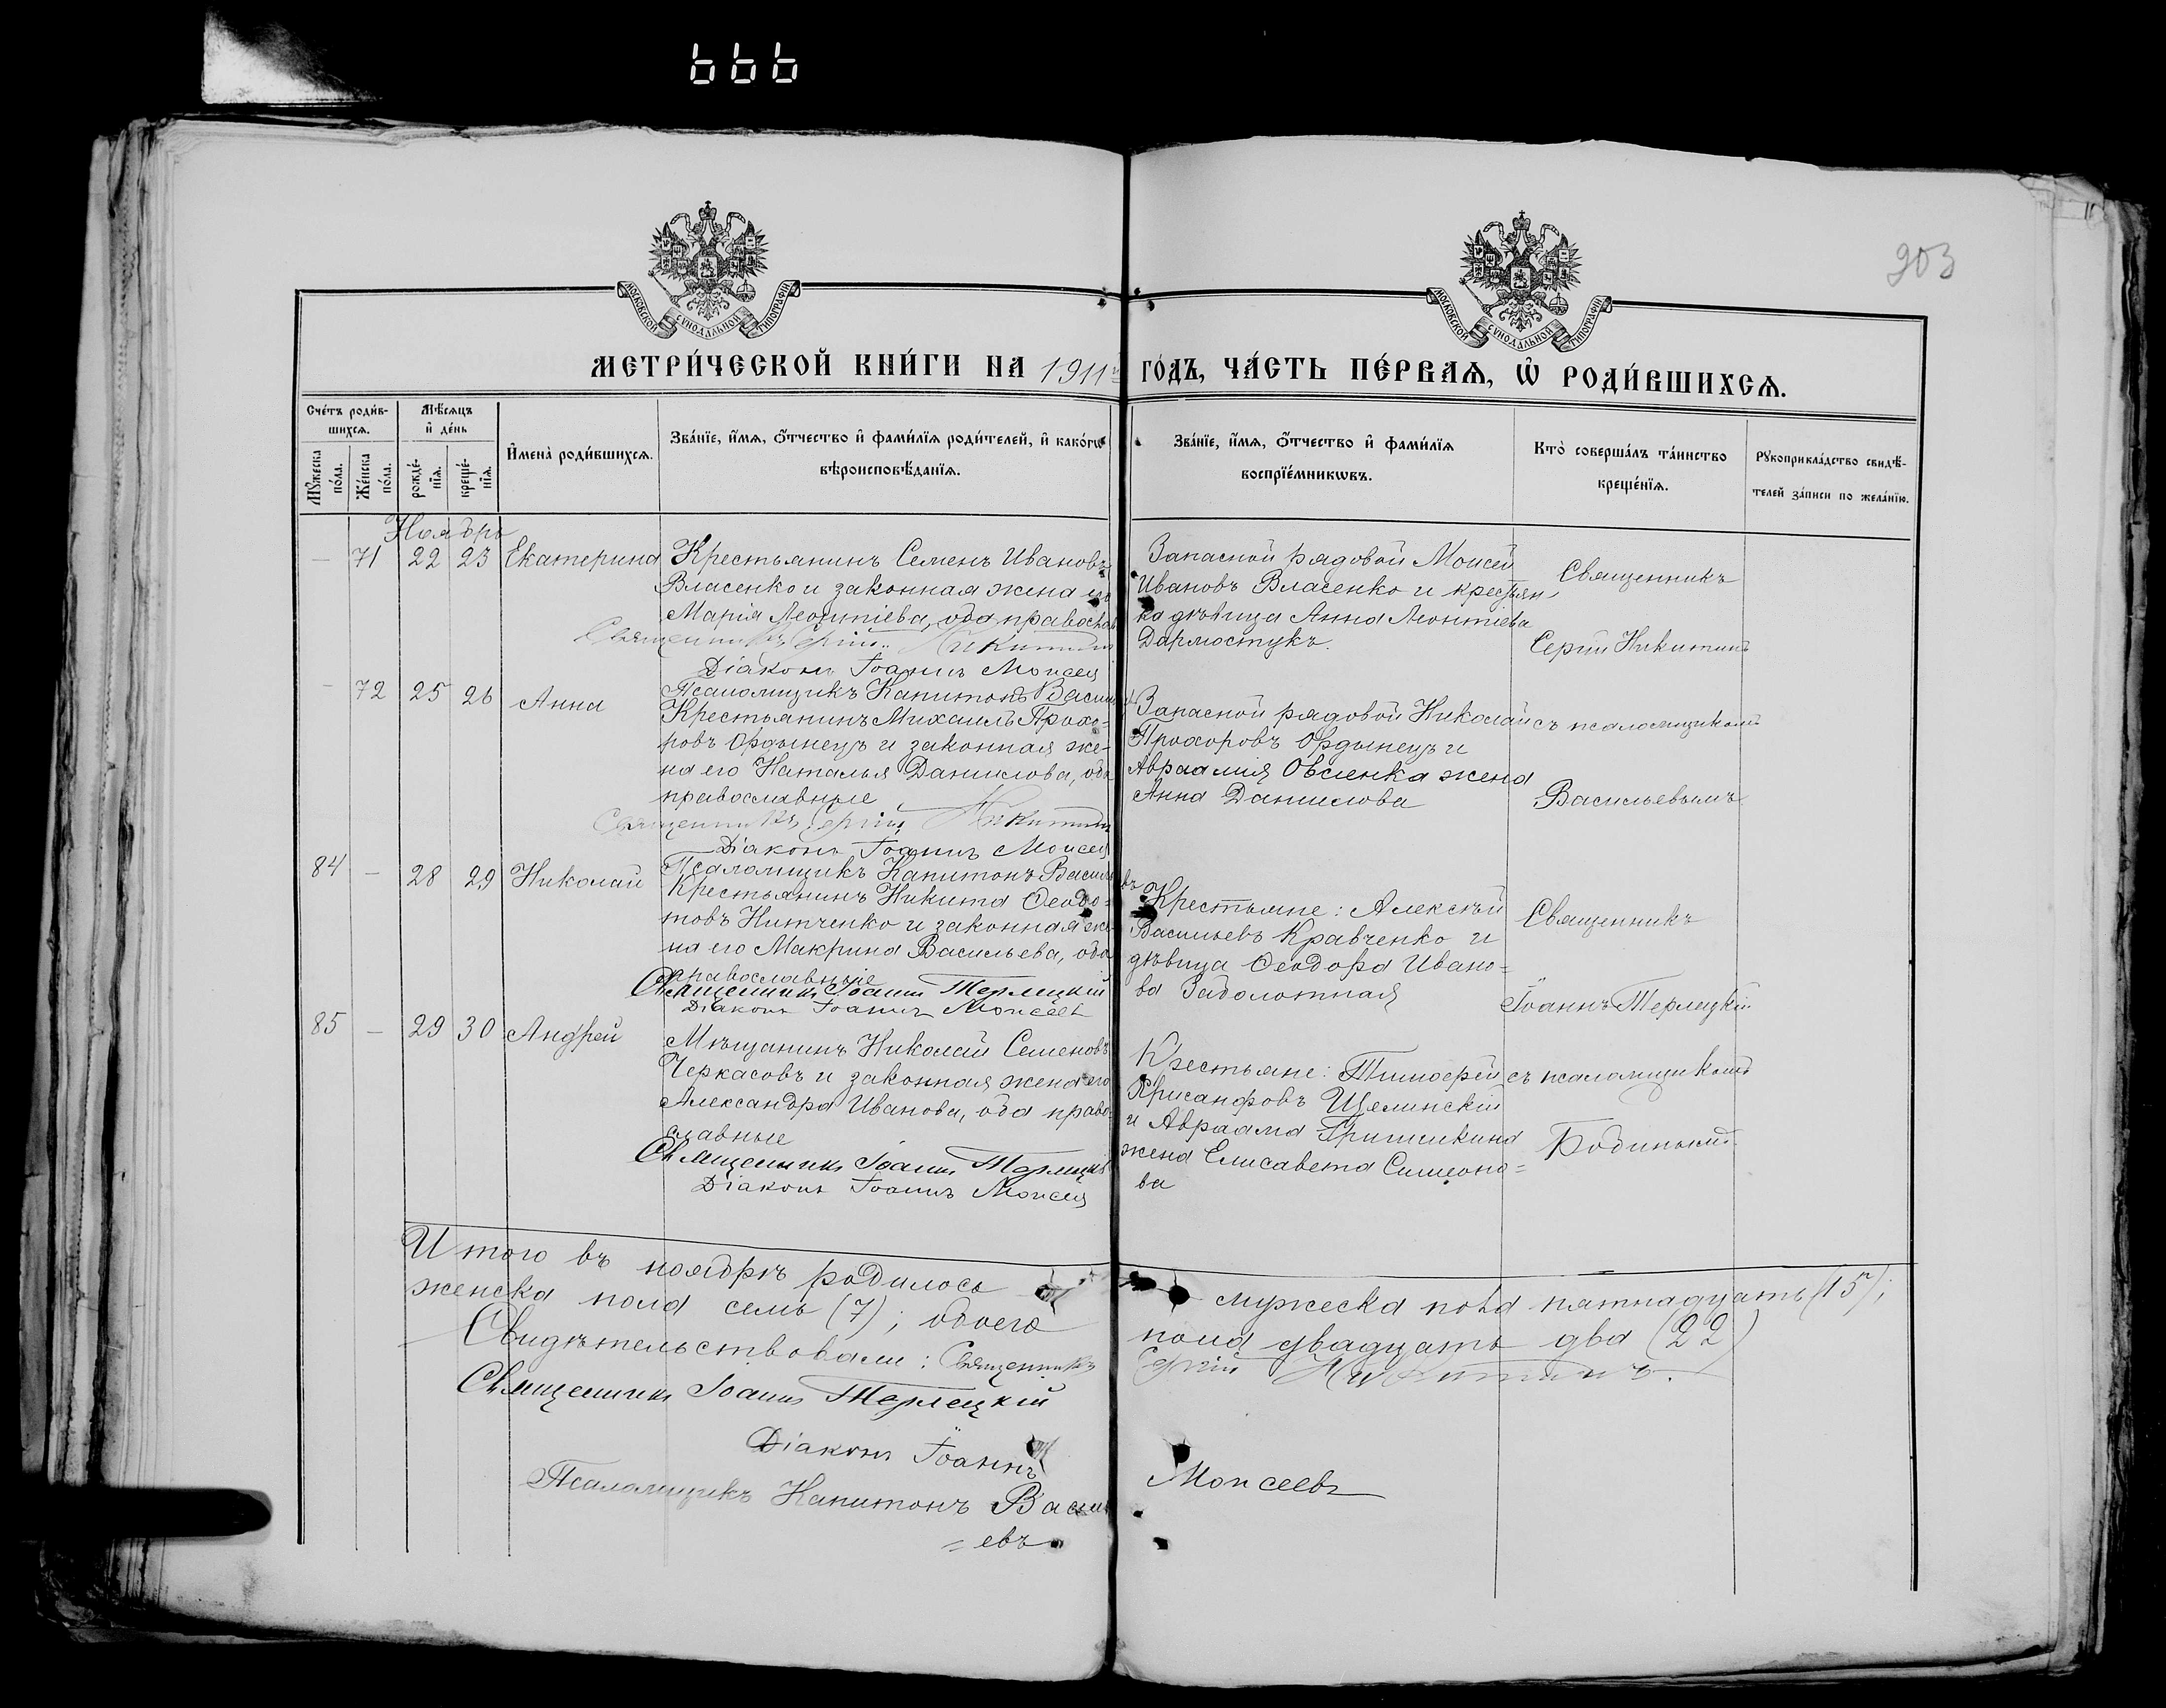 666
903
МОСКОВСКОЙ СѴНОДАЛЬНОЙ ТИПОГРАФІИ
МОСКОВСКОЙ СѴНОДАЛЬНОЙ ТИПОГРАФІИ
МЕТРИ́ЧЕСКОЙ КНИ́ГИ НА 1911й ГО́ДЪ, ЧА́СТЬ ПЕ́РВАѦ, Ѡ҆ РОДИ́ВШИХСѦ.
Сче́тъ роди́в-
шихсѧ.
Мѣ́сѧцъ
и҆ де́нь
Мꙋ́жеска
по́ла.
Же́нска
по́ла.
рожде́-
нїѧ.
креще́-
нїѧ.
И҆мена̀ роди́вшихсѧ.
Зва́нїе, и҆́мѧ, ѻ҆́тчество и҆ фами́лїѧ роди́телей, и҆ како́гѡ
вѣроисповѣ́данїѧ.
Зва́нїе, и҆́мѧ, ѻ҆́тчество и҆ фами́лїѧ
воспрїе́мникѡвъ.
Кто̀ соверша́лъ та́инство
креще́нїѧ.
Рꙋкоприкла́дство свидѣ́-
телей за́писи по жела́нїю.
Ноябрь
— 71 22 23 Екатерина
Крестьянинъ Семенъ Ивановъ
Власенко и законная жена его
Марія Леонтіева, оба православ
Священникъ Сергій Никитинъ
Діаконъ Іоаннъ Моисеев
Псаломщикъ Капитонъ Васильевъ
Запасной рядовой Моисей
Ивановъ Власенко и крестьян
ка дѣвица Анна Леонтіева
Дармостукъ.
Священникъ
Сергій Никитинъ
— 72 25 26 Анна
Крестьянинъ Михаилъ Прохо-
ровъ Ордынецъ и законная же-
на его Наталья Данилова, оба
православные
Священникъ Сергій Никитинъ
Діаконъ Іоаннъ Моисеев
Псаломщикъ Капитонъ Васильевъ
Запасной рядовой Николай
Прохоровъ Ордынецъ и
Авраамія Овсиенка жена
Анна Данилова
съ псаломщикомъ
Васильевымъ
84 — 28 29 Николай
Крестьянинъ Никита Феодо-
товъ Нитченко и законная же
на его Макрина Васильева, оба
православные
Священникъ Іоаннъ Терлецкій
Діаконъ Іоаннъ Моисеев
Крестьяне: Алексѣй
Васильевъ Кравченко и
дѣвица Феодора Ивано=
ва Заболотная
Священникъ
Іоаннъ Терлецкій
85 — 29 30 Андрей
Мѣщанинъ Николай Семеновъ
Черкасовъ и законная жена его
Александра Иванова, оба право-
славные
Священникъ Іоаннъ Терлецкій
Діаконъ Іоаннъ Моисеев
Крестьяне: Тимофей
Хрисанфовъ Щелинскій
и Авраама Гришикина
жена Елисавета Симеоно=
ва
съ псаломщикомъ
Итого въ ноябрѣ родилось мужеска пола пятнадцать (15);
женска пола семь (7); обоего пола двадцать два (22)
Свидѣтельствовали: Священникъ Сергій Никитинъ.
Священникъ Іоаннъ Терлецкій
Діаконъ Іоаннъ Моисеевъ
Псаломщикъ Капитонъ Василь
= евъ